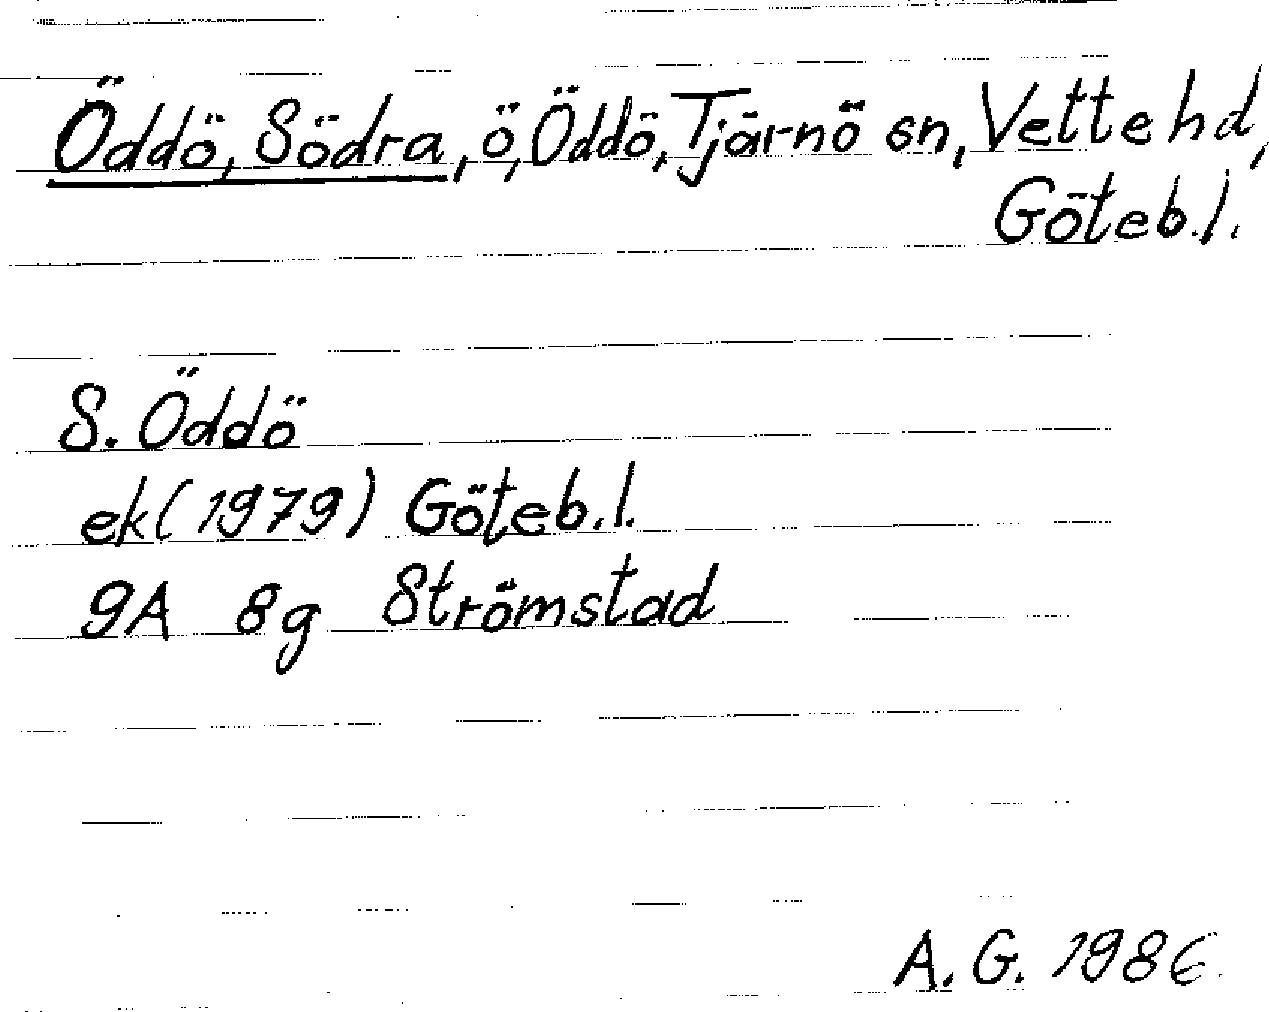 Öddö, Södra, ö, Öddö, Tjärnö sn, Vette hd,
Göteb. l.
S. Öddö
ek (1979) Göteb. l.
9A 8g Strömstad
A. G. 1986